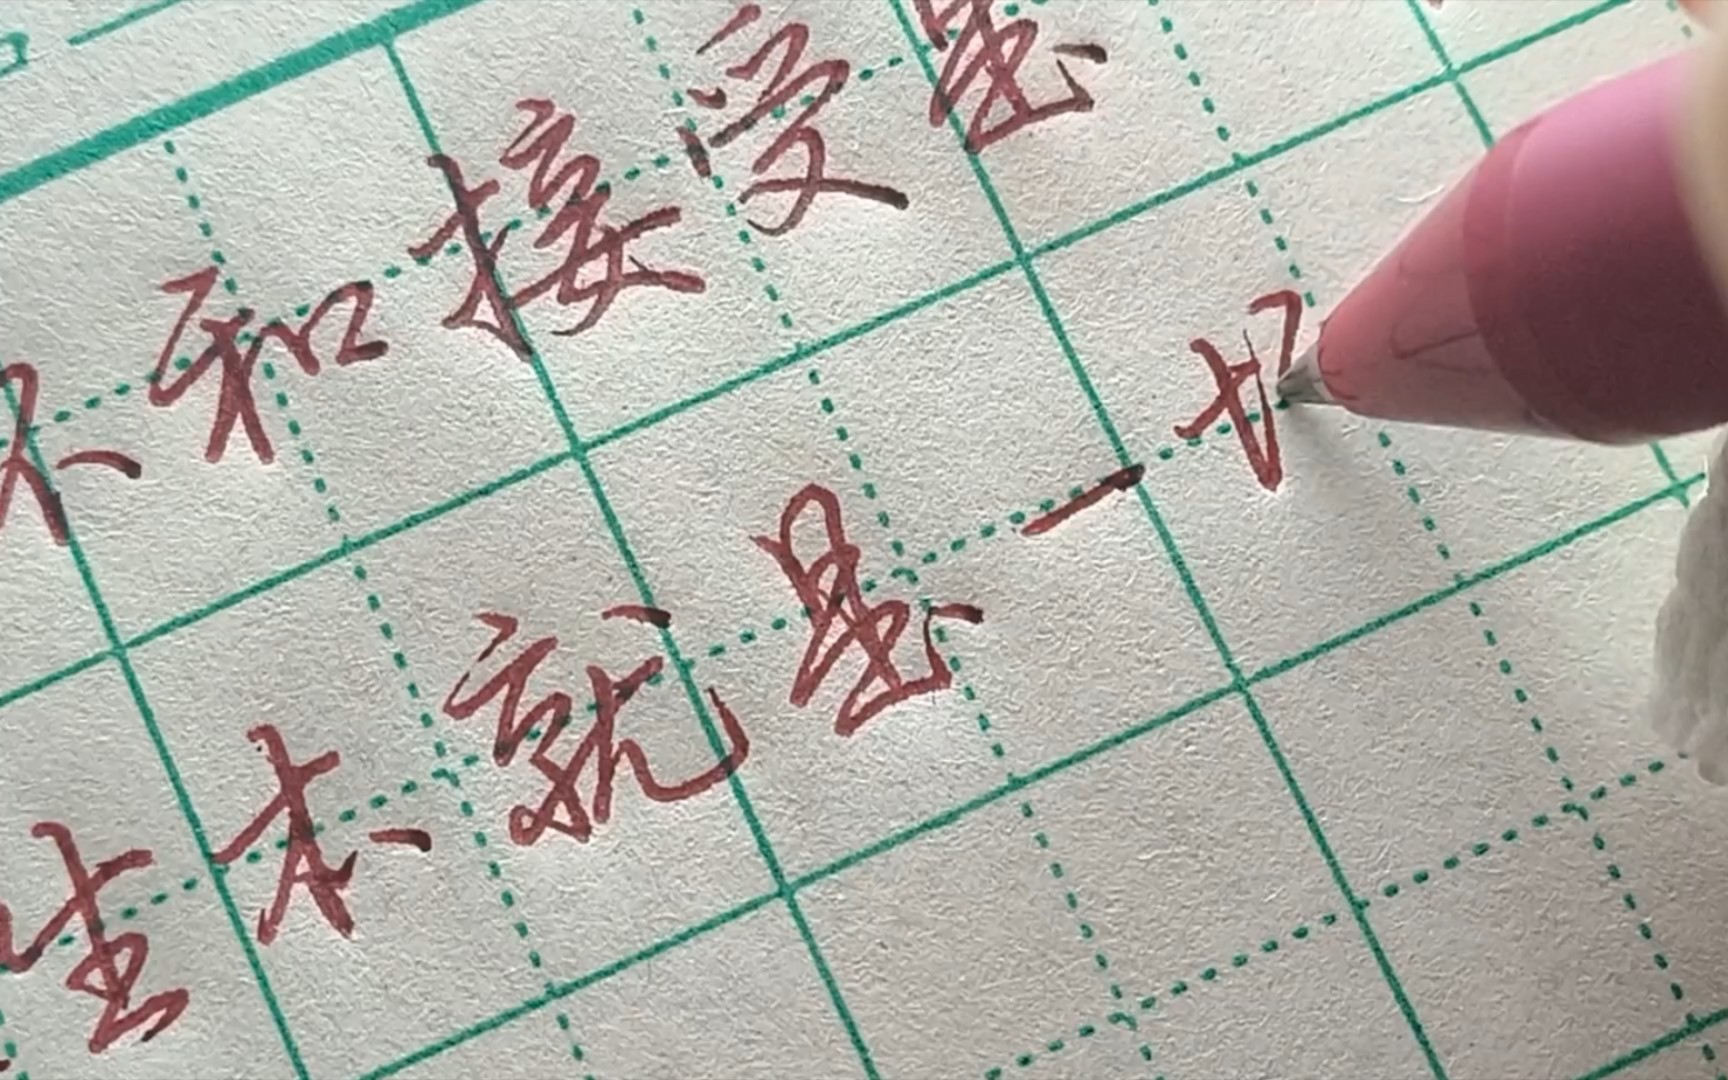 和接受是
生本就是一